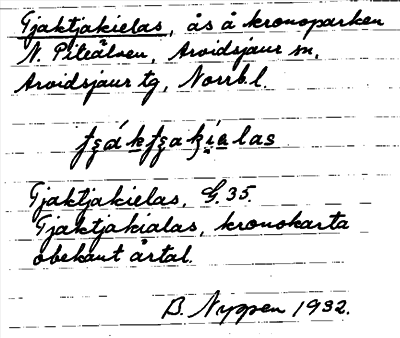 Tjaktjakielas, ås å kronoparken
N. Piteälven, Arvidsjaur sn,
Arvidsjaur tg, Norrb.l.
Tjaktjakielas, G. 35.
Tjaktjakialas, kronokarta
obekant årtal.
B. Nyppen 1932.